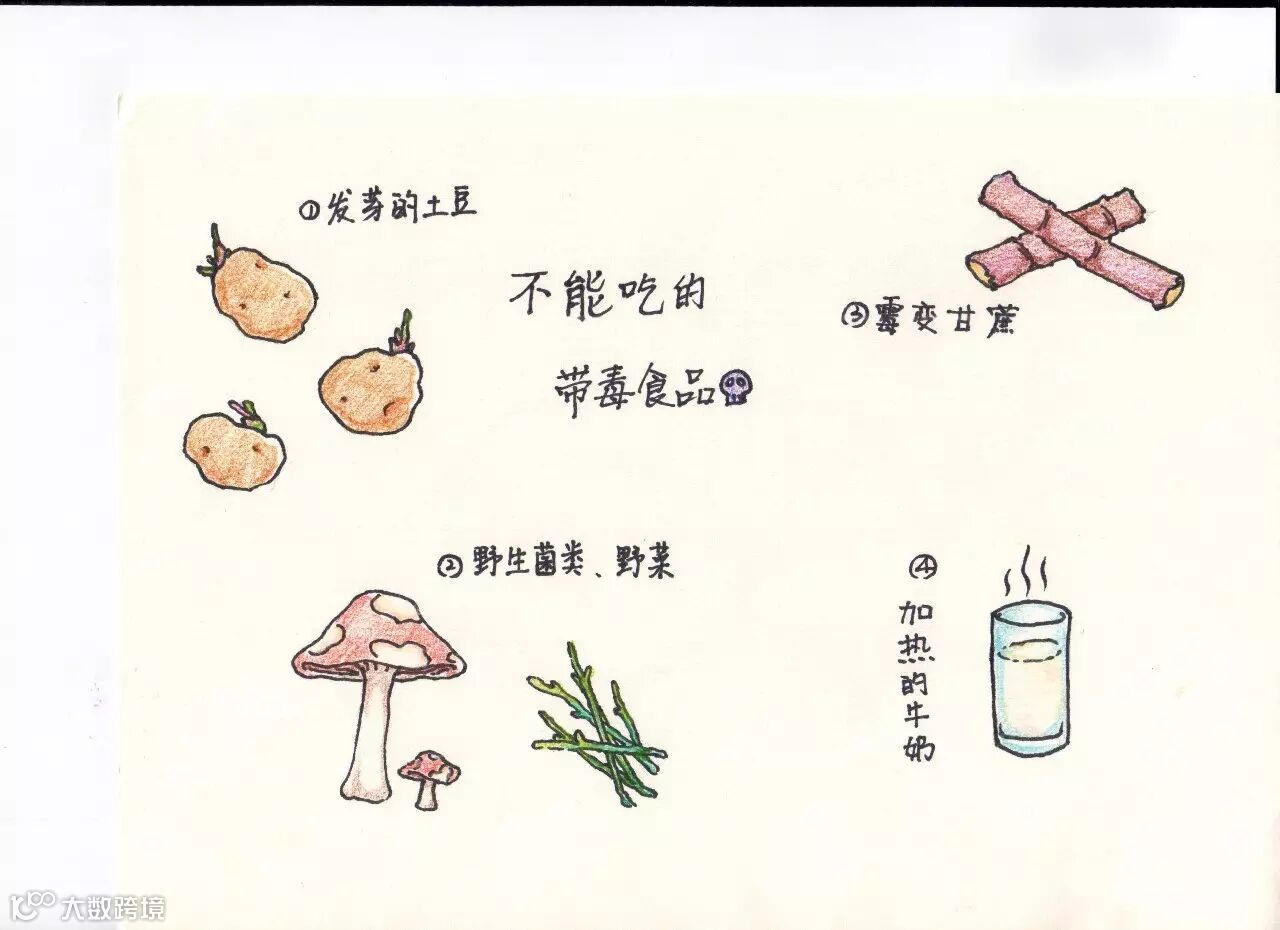 ①发芽的土豆
不能吃的
带毒食品
③霉变甘蔗
②野生菌类、野菜
④
加热的牛奶
大数跨境